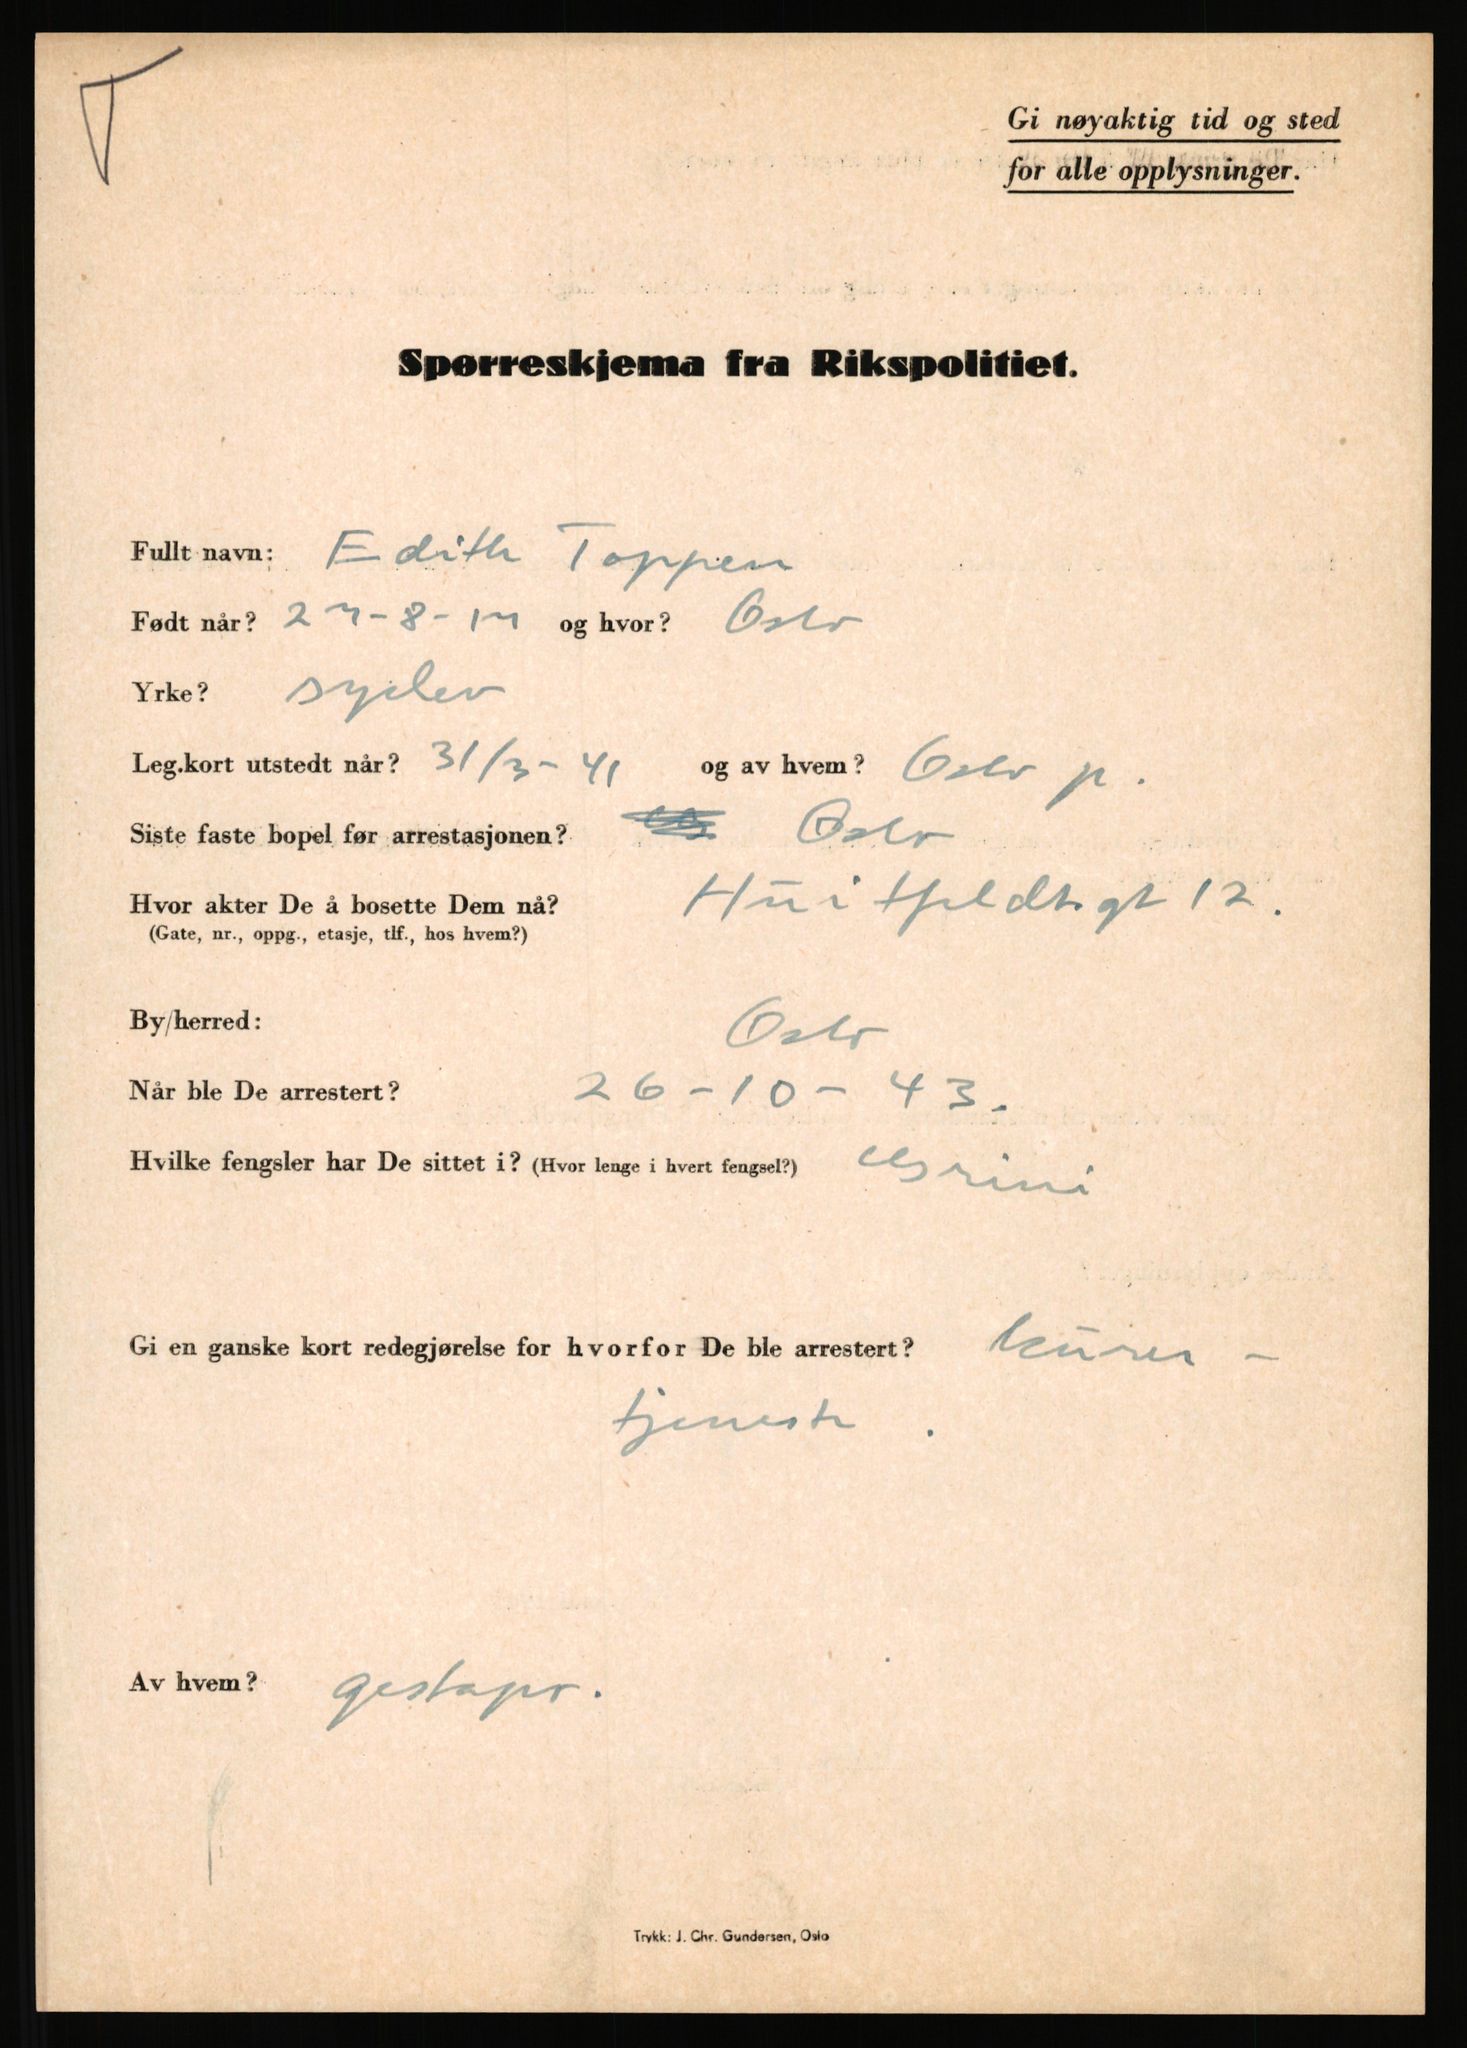 T
Gi nøyaktig tid og sted
for alle opplysninger.
Spørreskjema fra Rikspolitiet.
Fullt navn: Edith Toppen
Født når? og hvor? Oslo
Yrke?
Leg.kort utstedt når? 31/3-41 og av hvem? Oslo p.
Siste faste bopel før arrestasjonen? Oslo
Hvor akter De å bosette Dem nå? Huitfeldtsgt 12.
(Gate, nr., oppg., etasje, tlf., hos hvem?)
By/herred: Oslo
Når ble De arrestert? 26-10-43.
Hvilke fengsler har De sittet i? (Hvor lenge i hvert fengsel?) Grini
Gi en ganske kort redegjørelse for hvorfor De ble arrestert? kurer-
tjeneste.
Av hvem? gestapo.
Trykk: J. Chr. Gundersen, Oslo